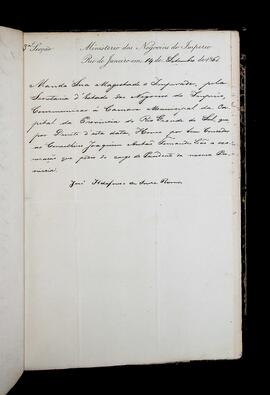 3ª Secção
Ministerio dos Negocios do Imperio
Rio de Janeiro em 14 de Setembro de 186
Manda Sua Magestade o Imperador, pela
Secretaria d'Estado dos Negocios do Imperio,
Communicar á Camara Municipal da Ca
pital da Provincia do Rio Grande do Sul, que
por Decreto d'esta data, Houve por bem Conceder
ao Conselheiro Joaquim Antão Fernandes Leão a exo
neração que pedio do cargo de Presidente da mesma Pro
vincia.
José Ildefonso de Sousa Ramos